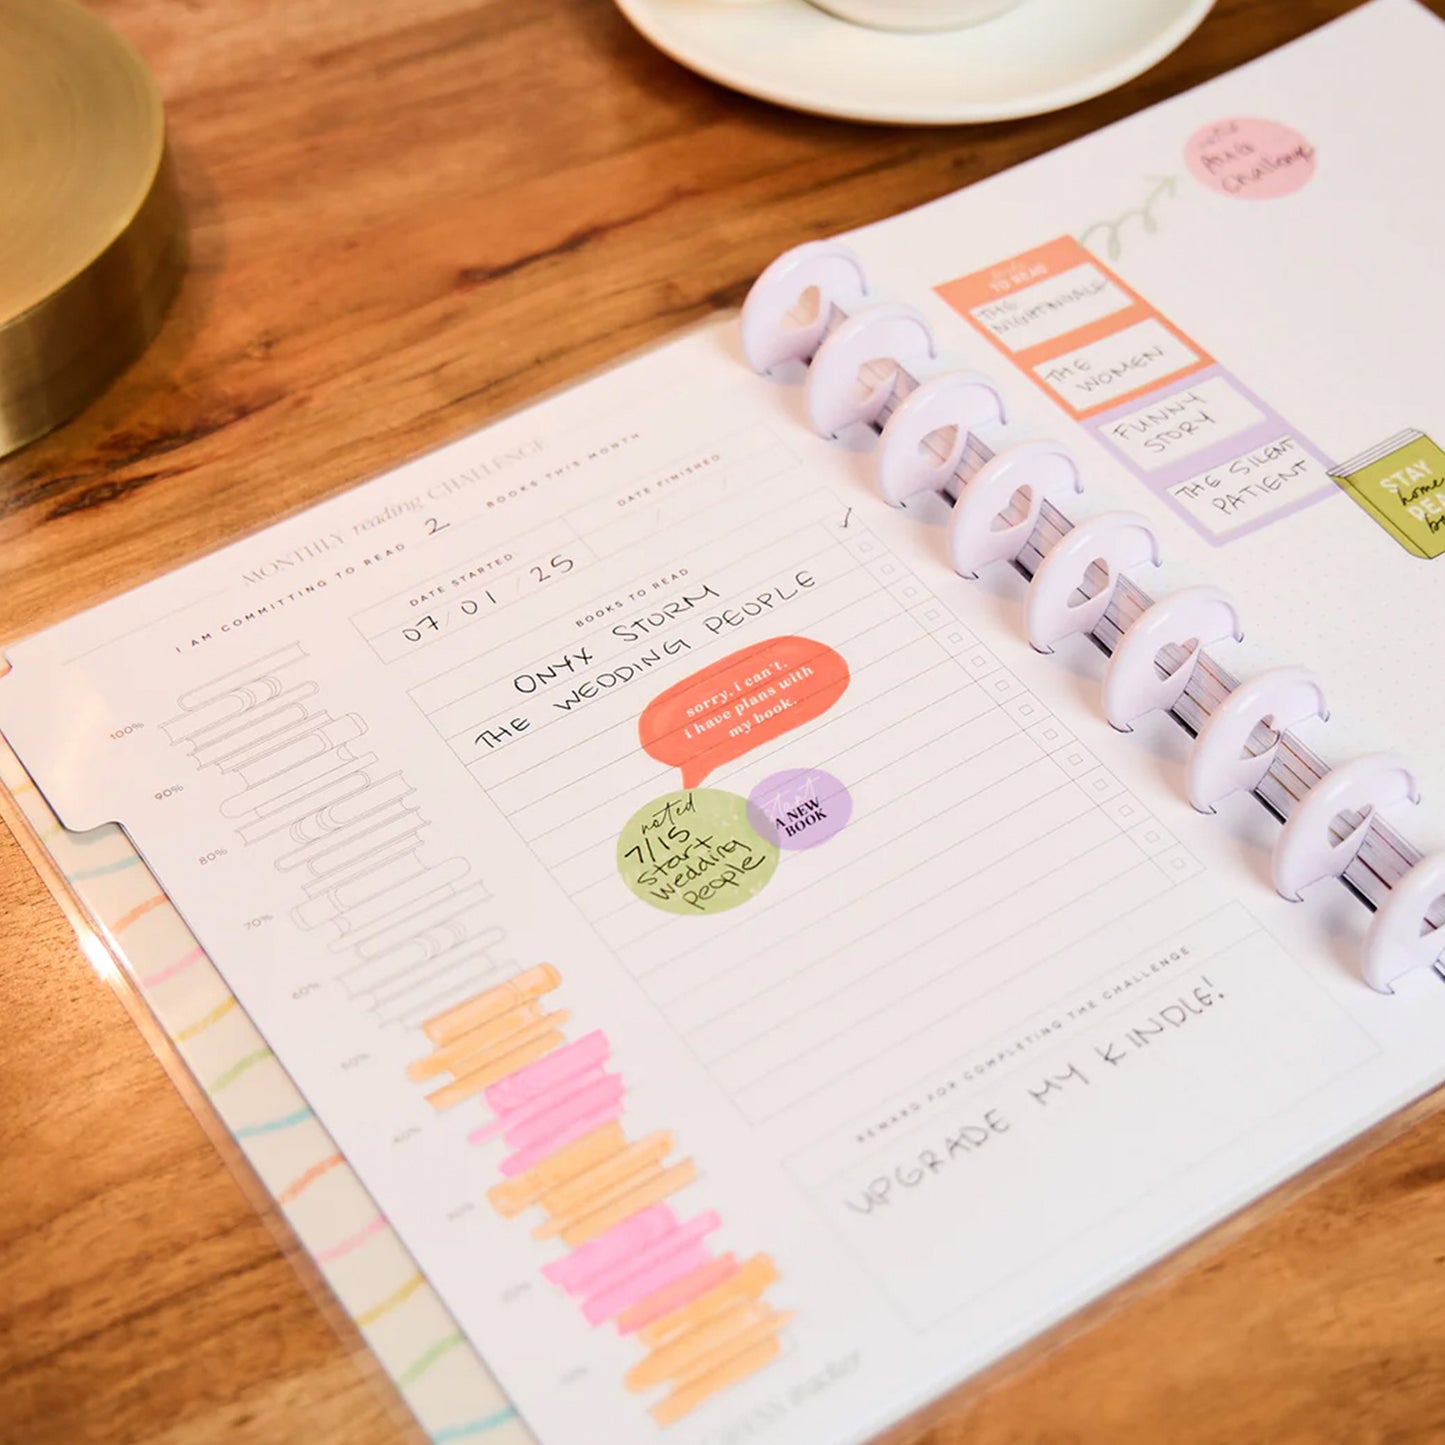 MONTHLY reading CHALLENGE
I AM COMMITTING TO READ 2 BOOKS THIS MONTH
DATE STARTED:
07/01/25
DATE FINISHED
/ /
BOOKS TO READ
✓
ONYX STORM
THE WEDDING PEOPLE
sorry, i can't.
i have plans with
my book.
noted
7/15
start
wedding
people
start
A NEW
BOOK
100%
90%
80%
70%
60%
50%
40%
REWARD FOR COMPLETING THE CHALLENGE
UPGRADE MY KINDLE!
AUG
Challenge
TO READ
THE
NIGHTINGALE
THE
WOMEN
FUNNY
STORY
THE SILENT
PATIENT
STAY
home